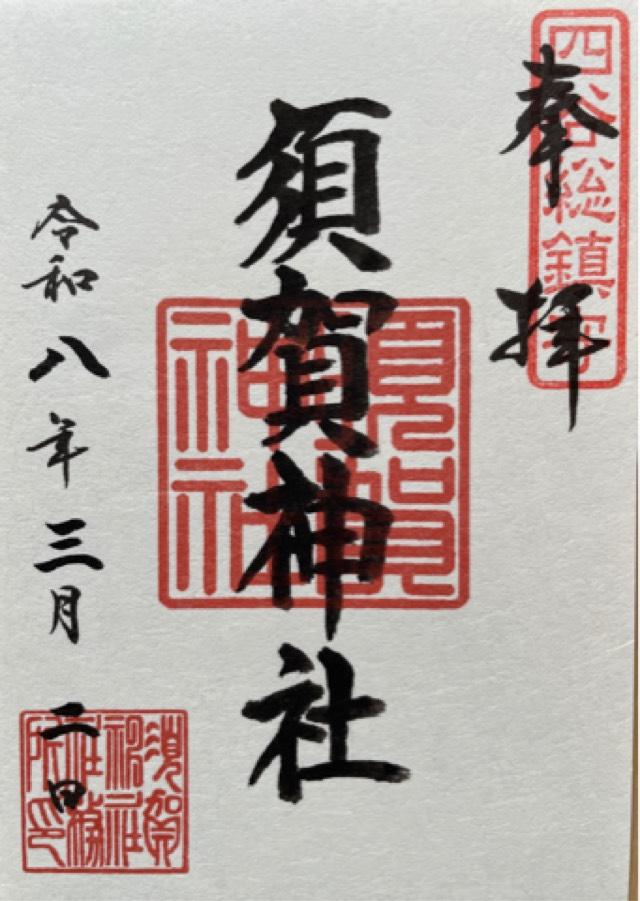 奉拝
四谷総鎮守
須賀神社
須賀神社
令和八年三月二日
須賀神社社務所印